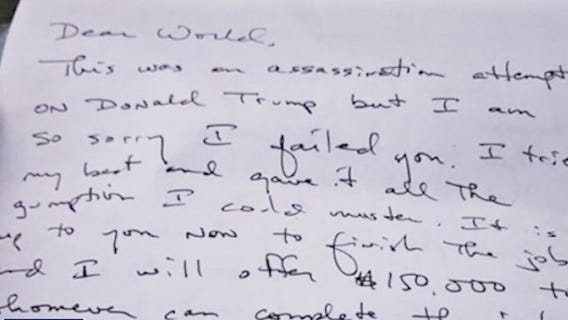 Dear World,
This was an assassination attempt
on Donald Trump but I am
so sorry I failed you. I trie
my best and gave it all the
gumption I could muster. It is
up to you now to finish the job
nd I will offer $150,000 to
homever can complete the